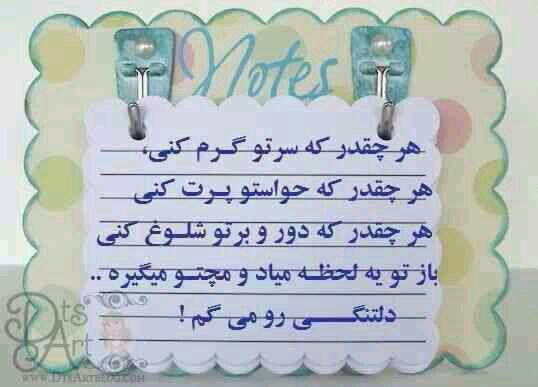 Notes
هر چقدر که سرتو گـرم کنی،
هر چقدر که حواستو پـرت کنی
هر چقدر که دور و برتو شلـوغ کنی
باز تو یه لحظـه میاد و مچتـو میگیره ..
دلتنگـــی رو می گم !
Dts
Art
www.DtsArtblog.com